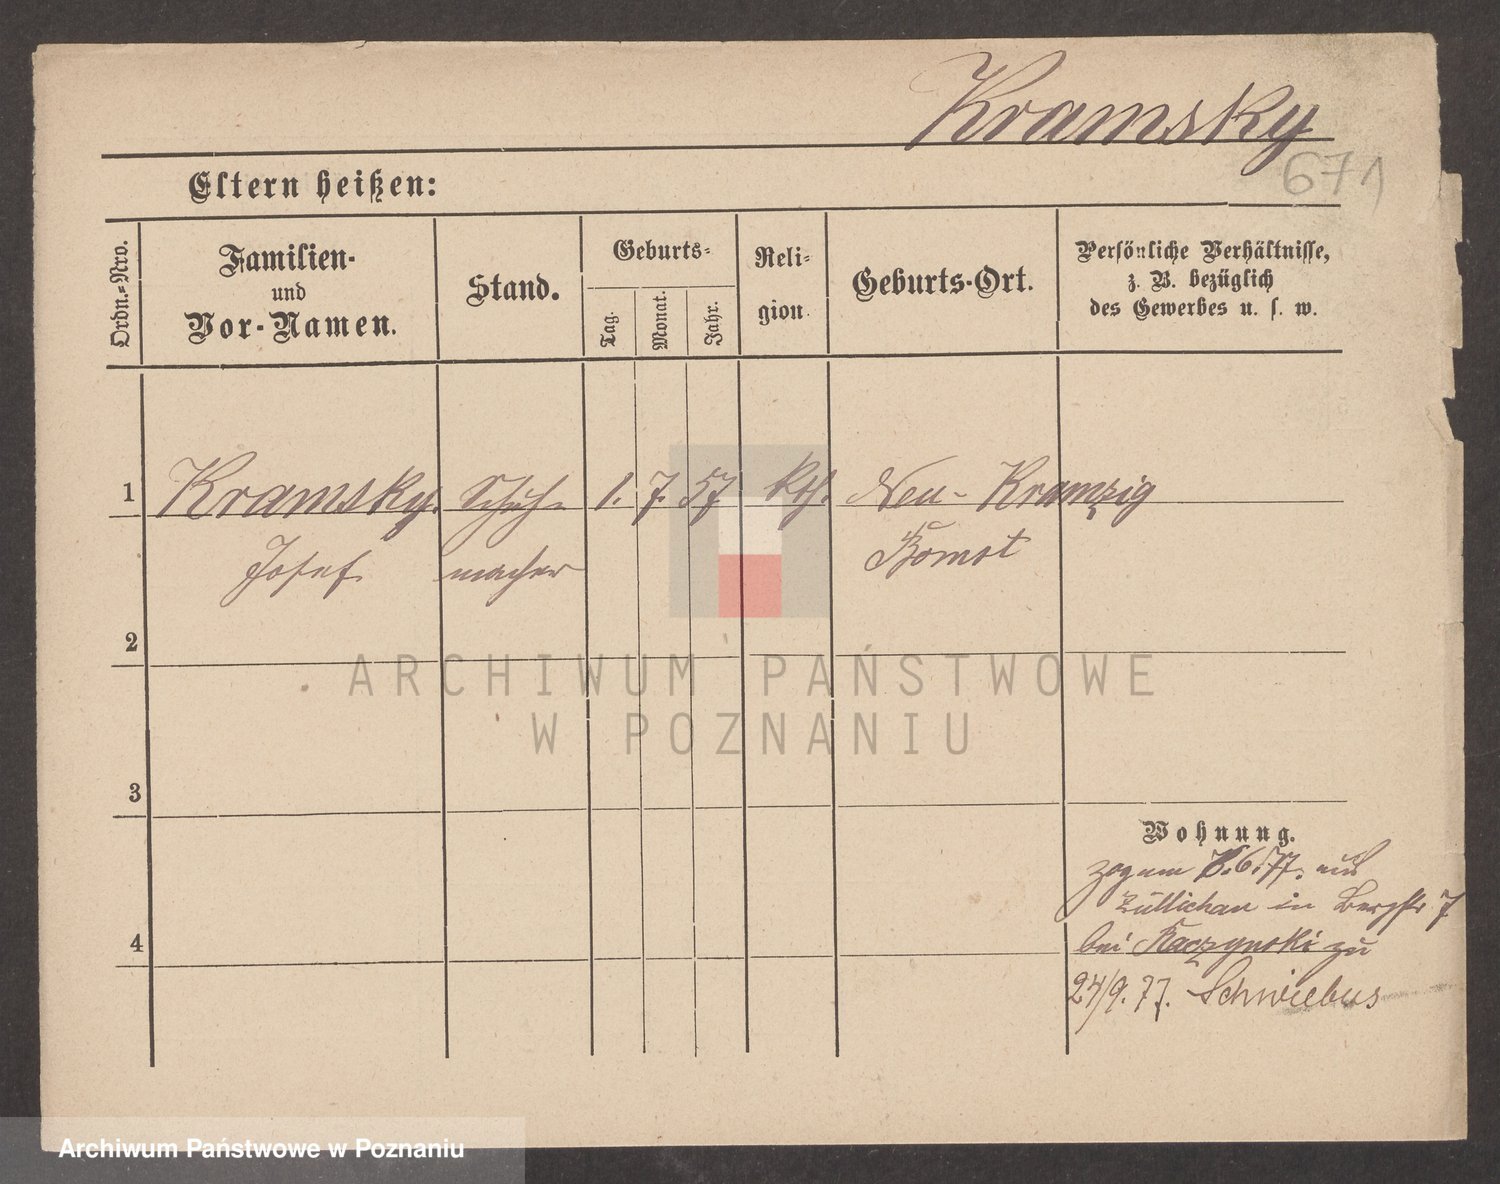 Kramsky
671
Eltern heißen:
Ordn.=Nro.
Familien-
und
Vor-Namen.
Stand.
Geburts=
Tag.
Monat.
Jahr.
Reli=
gion
Geburts-Ort.
Persönliche Verhältnisse,
z. B. bezüglich
des Gewerbes u. s. w.
1 Kramsky. Schuh= 1. 7. 57 kth. Neu-Kramzig
Josef macher Bomst
2
3
4
ARCHIWUM PAŃSTWOWE
W POZNANIU
Wohnung.
zog am 7.6.77. aus
Züllichau in Bergstr 7
bei Kaczynski zu
24/9.77. Schwiebus
Archiwum Państwowe w Poznaniu